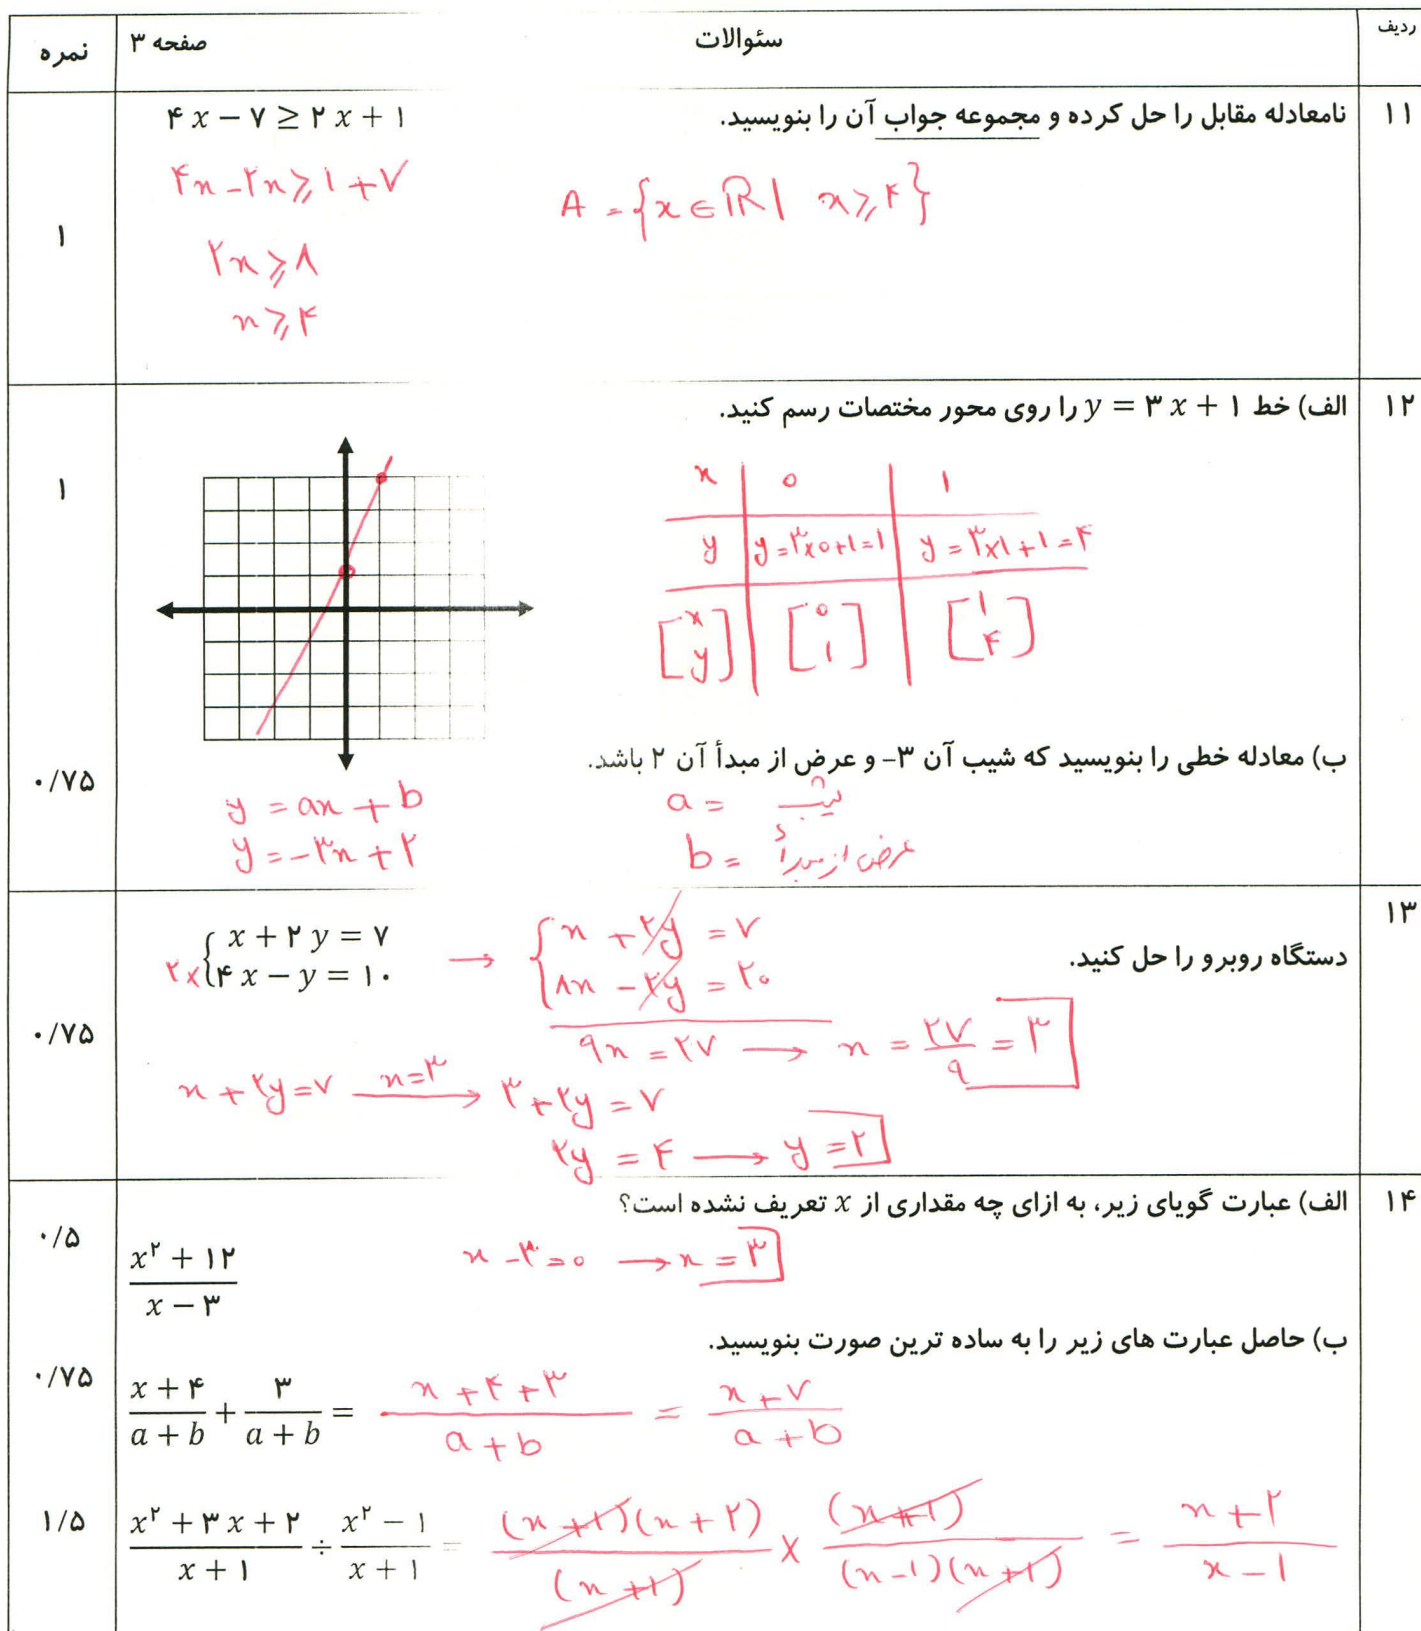 ردیف
سئوالات
صفحه ۳
نمره
۱۱
نامعادله مقابل را حل کرده و مجموعه جواب آن را بنویسید.
۴x − ۷ ≥ ۲x + ۱
۴x − ۲x ≥ ۱ + ۷
A = {x ∈ ℝ | x ≥ ۴}
۱
۲x ≥ ۸
x ≥ ۴
۱۲
الف) خط y = ۳x + ۱ را روی محور مختصات رسم کنید.
۱
x | ۰ | ۱
y | y = ۳×۰+۱=۱ | y = ۳×۱+۱=۴
[x y] | [۰ ۱] | [۱ ۴]
ب) معادله خطی را بنویسید که شیب آن ۳- و عرض از مبدأ آن ۲ باشد.
۰/۷۵
y = ax + b
a = شیب
y = −۳x + ۲
b = عرض از مبدأ
۱۳
دستگاه روبرو را حل کنید.
x + ۲y = ۷ → x + ۲y = ۷
۲× ۴x − y = ۱۰ ۸x − ۲y = ۲۰
۰/۷۵
۹x = ۲۷ → x = ۲۷/۹ = ۳
x + ۲y = ۷ x=۳ → ۳ + ۲y = ۷
۲y = ۴ → y = ۲
۱۴
الف) عبارت گویای زیر، به ازای چه مقداری از x تعریف نشده است؟
۰/۵
(x² + ۱۲)/(x − ۳)
x − ۳ = ۰ → x = ۳
ب) حاصل عبارت های زیر را به ساده ترین صورت بنویسید.
۰/۷۵
(x + ۴)/(a + b) + ۳/(a + b) = (x + ۴ + ۳)/(a + b) = (x + ۷)/(a + b)
۱/۵
(x² + ۳x + ۲)/(x + ۱) ÷ (x² − ۱)/(x + ۱) = (x + ۱)(x + ۲)/(x + ۱) × (x + ۱)/(x − ۱)(x + ۱) = (x + ۲)/(x − ۱)